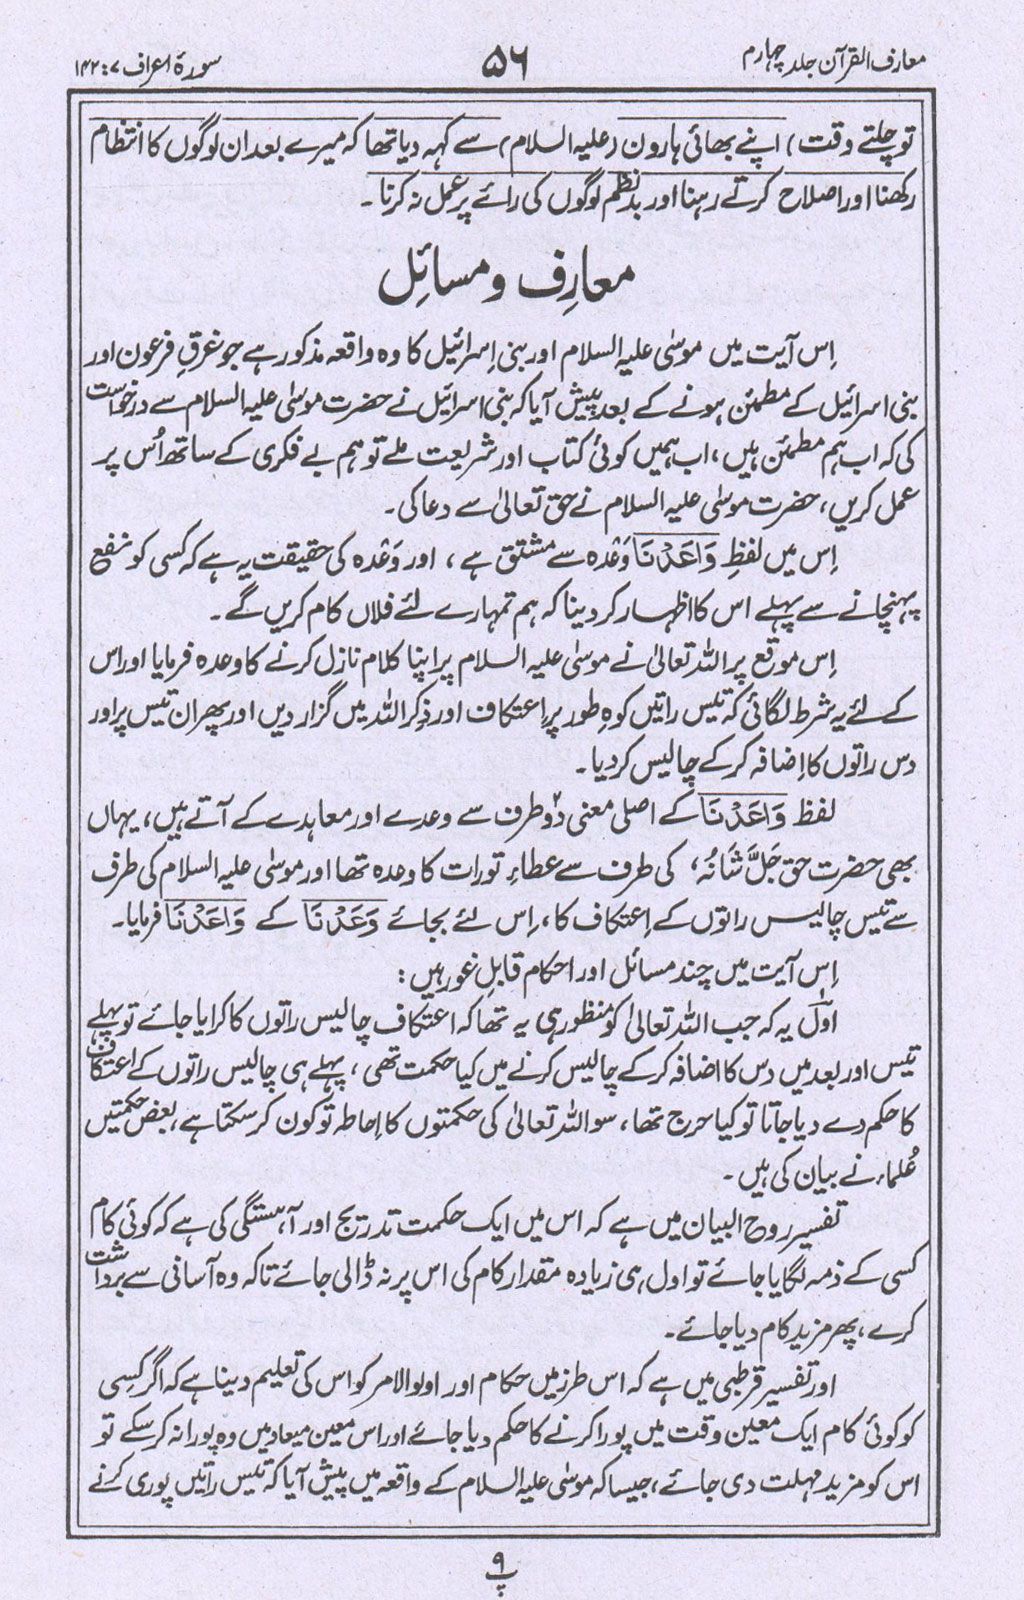 معارف القرآن جلد چہارم
۵۶
سورۃ اعراف ۷ : ۱۴۲
تو چلتے وقت) اپنے بھائی ہارون (علیہ السلام) سے کہہ دیا تھا کہ میرے بعد ان لوگوں کا انتظام
رکھنا اور اصلاح کرتے رہنا اور بدنظم لوگوں کی رائے پر عمل نہ کرنا۔
معارِف و مسائِل
اِس آیت میں موسیٰ علیہ السلام اور بنی اِسرائیل کا وہ واقعہ مذکور ہے جو غرقِ فرعون اور
بنی اسرائیل کے مطمئن ہونے کے بعد پیش آیا کہ بنی اسرائیل نے حضرت موسیٰ علیہ السلام سے درخواست
کی کہ اب ہم مطمئن ہیں، اب ہمیں کوئی کتاب اور شریعت ملے تو ہم بے فکری کے ساتھ اُس پر
عمل کریں، حضرت موسیٰ علیہ السلام نے حق تعالیٰ سے دعا کی۔
اِس میں لفظِ وَاعَدْنَا وَعْدہ سے مشتق ہے، اور وَعْدہ کی حقیقت یہ ہے کہ کسی کو نفع
پہنچانے سے پہلے اس کا اظہار کردینا کہ ہم تمہارے لئے فلاں کام کریں گے۔
اِس موقع پر اللہ تعالیٰ نے موسیٰ علیہ السلام پر اپنا کلام نازل کرنے کا وعدہ فرمایا اور اس
کے لئے یہ شرط لگائی کہ تیس راتیں کوہِ طور پر اِعتکاف اور ذِکر اللہ میں گزار دیں اور پھر ان تیس پر اور
دس راتوں کا اِضافہ کرکے چالیس کردیا۔
لفظ وَاعَدْنَا کے اصلی معنی دو طرف سے وعدے اور معاہدے کے آتے ہیں، یہاں
بھی حضرت حق جَلَّ شَانُہٗ، کی طرف سے عطاءِ تورات کا وعدہ تھا اور موسیٰ علیہ السلام کی طرف
سے تیس چالیس راتوں کے اِعتکاف کا، اِس لئے بجائے وَعَدْنَا کے وَاعَدْنَا فرمایا۔
اِس آیت میں چند مسائل اور احکام قابلِ غور ہیں:
اوّل یہ کہ جب اللہ تعالیٰ کو منظور ہی یہ تھا کہ اعتکاف چالیس راتوں کا کرایا جائے تو پہلے
تیس اور بعد میں دس کا اضافہ کرکے چالیس کرنے میں کیا حکمت تھی، پہلے ہی چالیس راتوں کے اعتکاف
کا حکم دے دیا جاتا تو کیا حرج تھا، سو اللہ تعالیٰ کی حکمتوں کا اِحاطہ تو کون کرسکتا ہے، بعض حکمتیں
عُلماء نے بیان کی ہیں۔
تفسیر روح البیان میں ہے کہ اس میں ایک حکمت تدریج اور آہستگی کی ہے کہ کوئی کام
کسی کے ذمہ لگایا جائے تو اول ہی زیادہ مقدار کام کی اس پر نہ ڈالی جائے تاکہ وہ آسانی سے برداشت
کرے، پھر مزید کام دیا جائے۔
اور تفسیر قرطبی میں ہے کہ اس طرز میں حکام اور اولوالامر کو اس کی تعلیم دینا ہے کہ اگر کسِی
کو کوئی کام ایک معین وقت میں پورا کرنے کا حکم دیا جائے اور اس معین میعاد میں وہ پورا نہ کرسکے تو
اس کو مزید مہلت دی جائے، جیسا کہ موسیٰ علیہ السلام کے واقعہ میں پیش آیا کہ تیس راتیں پوری کرنے
۹
پ